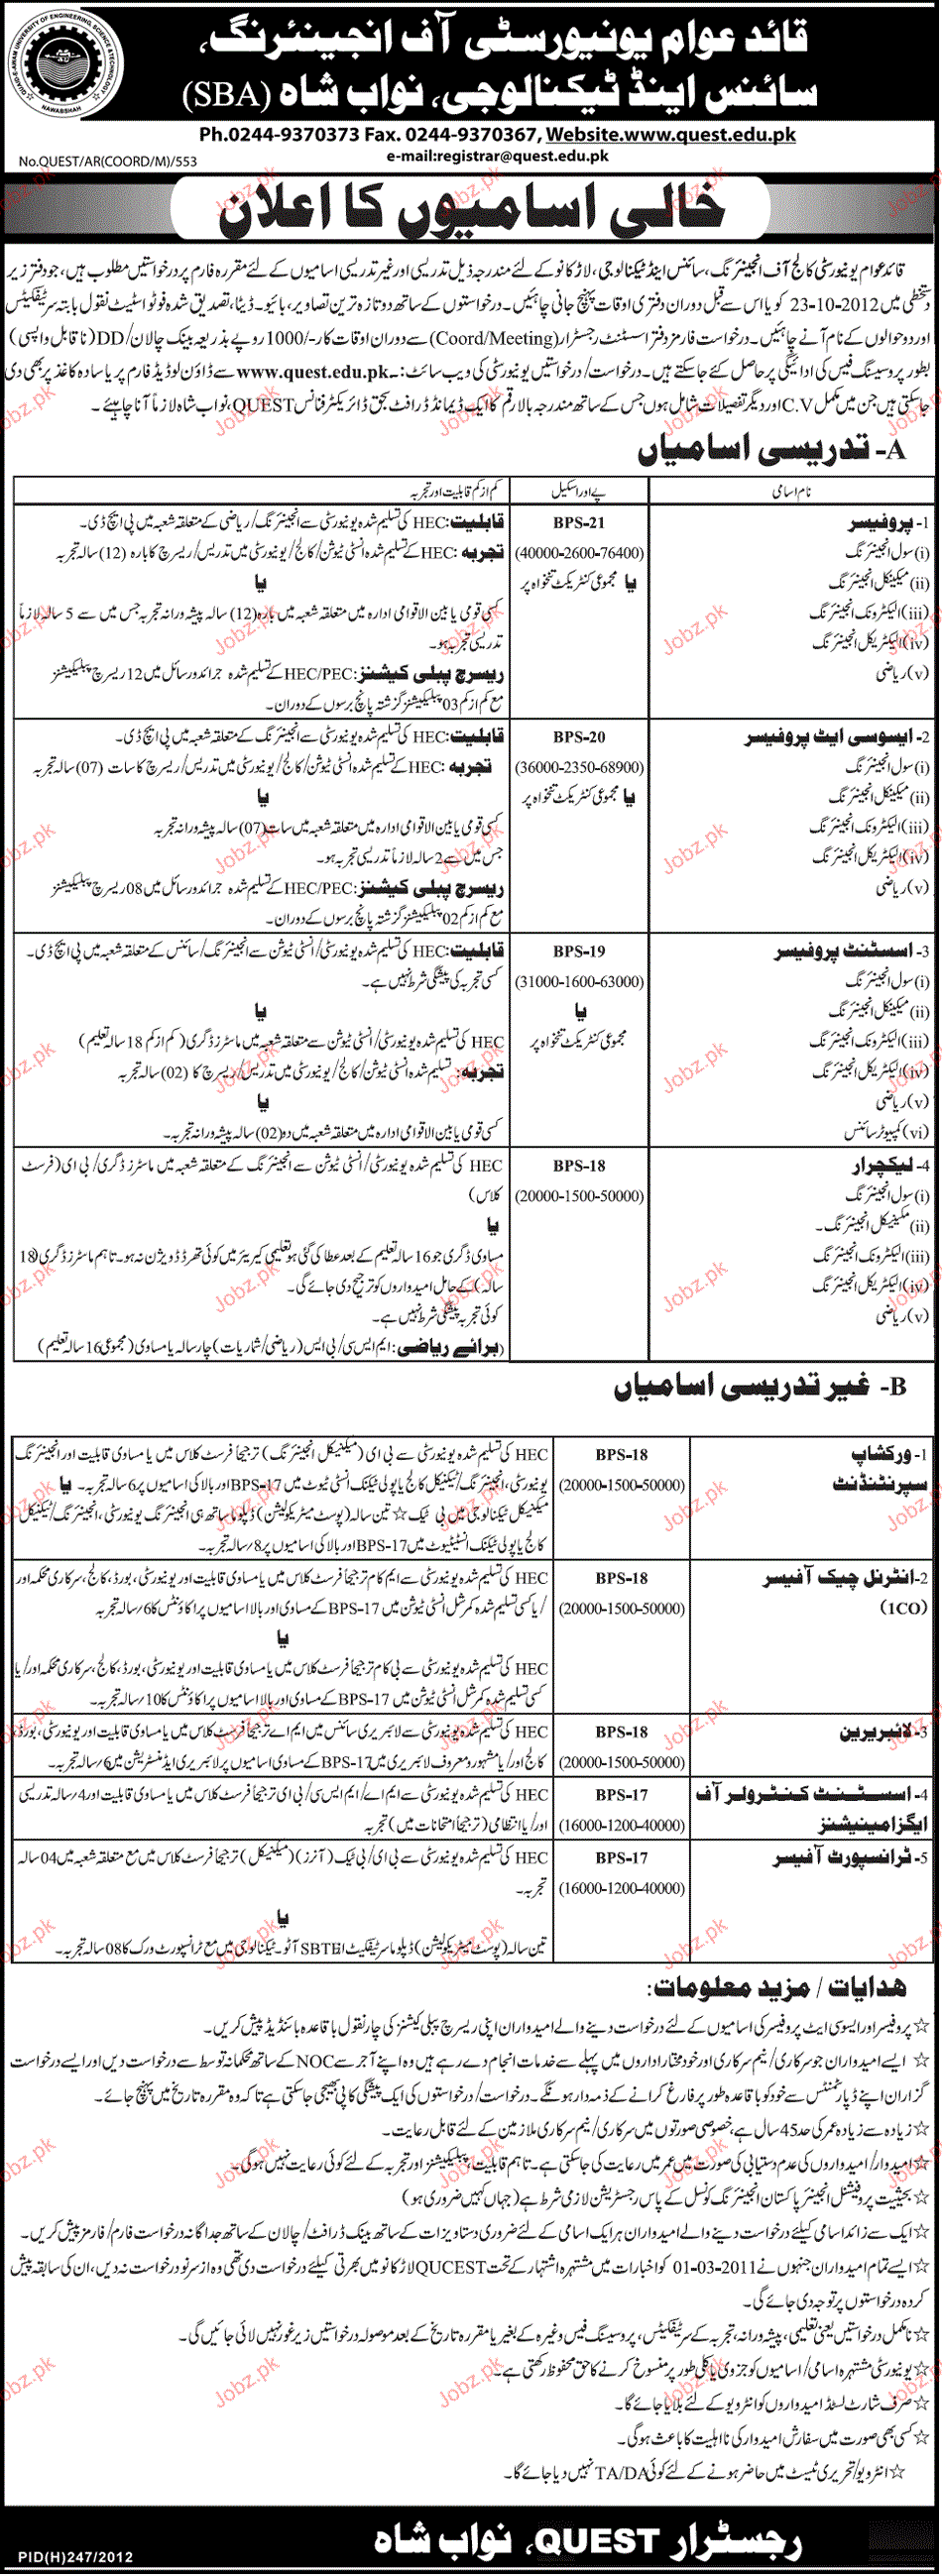 قائد عوام یونیورسٹی آف انجینئرنگ،
سائنس اینڈ ٹیکنالوجی، نواب شاہ (SBA)
Ph.0244-9370373 Fax. 0244-9370367, Website.www.quest.edu.pk
e-mail:registrar@quest.edu.pk
No.QUEST/AR(COORD/M)/553
خالی اسامیوں کا اعلان
قائد عوام یونیورسٹی کالج آف انجینئرنگ، سائنس اینڈ ٹیکنالوجی، لاڑکانو کے لئے مندرجہ ذیل تدریسی اور غیر تدریسی اسامیوں کے لئے مقررہ فارم پر درخواستیں مطلوب ہیں، جو دفتر زیر
دستخطی میں 2012-10-23 کو یا اس سے قبل دوران دفتری اوقات پہنچ جانی چاہئیں۔ درخواستوں کے ساتھ دو تازہ ترین تصاویر، بائیو۔ ڈیٹا، تصدیق شدہ فوٹو اسٹیٹ نقول بابتہ سرٹیفکیٹس
اور دو حوالوں کے نام آنے چاہئیں۔ درخواست فارمز دفتر اسسٹنٹ رجسٹرار (Coord/Meeting) سے دوران اوقات کار -/1000 روپے بذریعہ بینک چالان/DD (ناقابل واپسی)
بطور پروسیسنگ فیس کی ادائیگی پر حاصل کئے جاسکتے ہیں۔ درخواست/درخواستیں یونیورسٹی کی ویب سائٹ: www.quest.edu.pk سے ڈاؤن لوڈیڈ فارم پر یا سادہ کاغذ پر بھی دی
جاسکتی ہیں جن میں مکمل C.V اور دیگر تفصیلات شامل ہوں جس کے ساتھ مندرجہ بالا رقم کا ایک ڈیمانڈ ڈرافٹ بحق ڈائریکٹر فنانس QUEST، نواب شاہ لازماً آنا چاہیئے۔
A- تدریسی اسامیاں
نام اسامی
پے اور اسکیل
کم از کم قابلیت اور تجربہ
1- پروفیسر
(i) سول انجینئرنگ
(ii) میکینکل انجینئرنگ
(iii) الیکٹرونک انجینئرنگ
(iv) الیکٹریکل انجینئرنگ
(v) ریاضی
BPS-21
(40000-2600-76400)
یا مجموعی کنٹریکٹ تنخواہ پر
قابلیت: HEC کی تسلیم شدہ یونیورسٹی سے انجینئرنگ/ریاضی کے متعلقہ شعبہ میں پی ایچ ڈی۔
تجربہ: HEC کے تسلیم شدہ انسٹی ٹیوشن/کالج/یونیورسٹی میں تدریس/ریسرچ کا بارہ (12) سالہ تجربہ
یا
کسی قومی یا بین الاقوامی ادارہ میں متعلقہ شعبہ میں بارہ (12) سالہ پیشہ ورانہ تجربہ جس میں سے 5 سالہ لازماً
تدریسی تجربہ ہو۔
ریسرچ پبلی کیشنز: HEC/PEC کے تسلیم شدہ جرائد و رسائل میں 12 ریسرچ پبلیکیشنز
مع کم از کم 03 پبلیکیشنز گزشتہ پانچ برسوں کے دوران۔
2- ایسوسی ایٹ پروفیسر
(i) سول انجینئرنگ
(ii) میکینکل انجینئرنگ
(iii) الیکٹرونک انجینئرنگ
(iv) الیکٹریکل انجینئرنگ
(v) ریاضی
BPS-20
(36000-2350-68900)
یا مجموعی کنٹریکٹ تنخواہ پر
قابلیت: HEC کی تسلیم شدہ یونیورسٹی سے انجینئرنگ کے متعلقہ شعبہ میں پی ایچ ڈی۔
تجربہ: HEC کے تسلیم شدہ انسٹی ٹیوشن/کالج/یونیورسٹی میں تدریس/ریسرچ کا سات (07) سالہ تجربہ
یا
کسی قومی یا بین الاقوامی ادارہ میں متعلقہ شعبہ میں سات (07) سالہ پیشہ ورانہ تجربہ
جس میں سے 2 سالہ لازماً تدریسی تجربہ ہو۔
ریسرچ پبلی کیشنز: HEC/PEC کے تسلیم شدہ جرائد و رسائل میں 08 ریسرچ پبلیکیشنز
مع کم از کم 02 پبلیکیشنز گزشتہ پانچ برسوں کے دوران۔
3- اسسٹنٹ پروفیسر
(i) سول انجینئرنگ
(ii) میکینکل انجینئرنگ
(iii) الیکٹرونک انجینئرنگ
(iv) الیکٹریکل انجینئرنگ
(v) ریاضی
(vi) کمپیوٹر سائنس
BPS-19
(31000-1600-63000)
یا
مجموعی کنٹریکٹ تنخواہ پر
قابلیت: HEC کی تسلیم شدہ یونیورسٹی/انسٹی ٹیوشن سے انجینئرنگ/سائنس کے متعلقہ شعبہ میں پی ایچ ڈی۔
کسی تجربہ کی پیشگی شرط نہیں ہے۔
یا
HEC کی تسلیم شدہ یونیورسٹی/انسٹی ٹیوشن سے متعلقہ شعبہ میں ماسٹرز ڈگری (کم از کم 18 سالہ تعلیم)
تجربہ: تسلیم شدہ انسٹی ٹیوشن/کالج/یونیورسٹی میں تدریس/ریسرچ کا (02) سالہ تجربہ
یا
کسی قومی یا بین الاقوامی ادارہ میں متعلقہ شعبہ میں دو (02) سالہ پیشہ ورانہ تجربہ۔
4- لیکچرار
(i) سول انجینئرنگ
(ii) مکینیکل انجینئرنگ۔
(iii) الیکٹرونک انجینئرنگ
(iv) الیکٹریکل انجینئرنگ
(v) ریاضی
BPS-18
(20000-1500-50000)
HEC کی تسلیم شدہ یونیورسٹی/انسٹی ٹیوشن سے انجینئرنگ کے متعلقہ شعبہ میں ماسٹرز ڈگری/بی ای (فرسٹ
کلاس)
یا
مساوی ڈگری جو 16 سالہ تعلیم کے بعد عطا کی گئی ہو تعلیمی کیریئر میں کوئی تھرڈ ڈویژن نہ ہو۔ تاہم ماسٹرز ڈگری (18
سالہ) کے حامل امیدواروں کو ترجیح دی جائے گی۔
کوئی تجربہ پیشگی شرط نہیں ہے۔
(برائے ریاضی: ایم ایس سی/بی ایس (ریاضی/شماریات) چار سالہ یا مساوی (مجموعی 16 سالہ تعلیم)
B- غیر تدریسی اسامیاں
1- ورکشاپ
سپرنٹنڈنٹ
BPS-18
(20000-1500-50000)
HEC کی تسلیم شدہ یونیورسٹی سے بی ای (میکینیکل انجینئرنگ) ترجیحاً فرسٹ کلاس میں یا مساوی قابلیت اور انجینئرنگ
یونیورسٹی، انجینئرنگ/ٹیکنیکل کالج یا پولی ٹیکنک انسٹی ٹیوٹ میں BPS-17 اور بالا کی اسامیوں پر 6 سالہ تجربہ۔ یا
میکینیکل ٹیکنالوجی میں بی ٹیک ☆ تین سالہ (پوسٹ میٹریکولیشن) ڈپلوما ساتھ ہی انجینئرنگ یونیورسٹی، انجینئرنگ/ٹیکنیکل
کالج یا پولی ٹیکنک انسٹیٹیوٹ میں BPS-17 اور بالا کی اسامیوں پر 8 سالہ تجربہ۔
2- انٹرنل چیک آفیسر
(1CO)
BPS-18
(20000-1500-50000)
HEC کی تسلیم شدہ یونیورسٹی سے ایم کام ترجیحاً فرسٹ کلاس میں یا مساوی قابلیت اور یونیورسٹی، بورڈ، کالج، سرکاری محکمہ اور
/یا کسی تسلیم شدہ کمرشل انسٹی ٹیوشن میں BPS-17 کے مساوی اور بالا اسامیوں پر اکاؤنٹس کا 6 سالہ تجربہ
یا
HEC کی تسلیم شدہ یونیورسٹی سے بی کام ترجیحاً فرسٹ کلاس میں یا مساوی قابلیت اور یونیورسٹی، بورڈ، کالج، سرکاری محکمہ اور/یا
کسی تسلیم شدہ کمرشل انسٹی ٹیوشن میں BPS-17 کے مساوی اور بالا اسامیوں پر اکاؤنٹس کا 10 سالہ تجربہ۔
3- لائبریرین
BPS-18
(20000-1500-50000)
HEC کی تسلیم شدہ یونیورسٹی سے لائبریری سائنس میں ایم اے ترجیحاً فرسٹ کلاس میں یا مساوی قابلیت اور یونیورسٹی، بورڈ،
کالج اور/یا مشہور و معروف لائبریری میں BPS-17 کے مساوی اسامیوں پر لائبریری ایڈمنسٹریشن میں 6 سالہ تجربہ۔
4- اسسٹنٹ کنٹرولر آف
ایگزامینیشنز
BPS-17
(16000-1200-40000)
HEC کی تسلیم شدہ یونیورسٹی سے ایم اے/ایم ایس سی/بی ای ترجیحاً فرسٹ کلاس میں یا مساوی قابلیت اور 4 سالہ تدریسی
اور/یا انتظامی (ترجیحاً امتحانات میں) تجربہ
5- ٹرانسپورٹ آفیسر
BPS-17
(16000-1200-40000)
HEC کی تسلیم شدہ یونیورسٹی سے بی ای/بی ٹیک (آنرز) (میکینیکل) ترجیحاً فرسٹ کلاس میں مع متعلقہ شعبہ میں 04 سالہ
تجربہ۔
یا
تین سالہ (پوسٹ میٹریکولیشن) ڈپلوما سرٹیفکیٹ SBTE آٹو۔ ٹیکنالوجی میں مع ٹرانسپورٹ ورک کا 08 سالہ تجربہ۔
ھدایات / مزید معلومات:
☆ پروفیسر اور ایسوسی ایٹ پروفیسر کی اسامیوں کے لئے درخواست دینے والے امیدواران اپنی ریسرچ پبلی کیشنز کی چار نقول باقاعدہ بائنڈیڈ پیش کریں۔
☆ ایسے امیدواران جو سرکاری/نیم سرکاری اور خود مختار اداروں میں پہلے سے خدمات انجام دے رہے ہیں وہ اپنے آجر سے NOC کے ساتھ محکمانہ توسط سے درخواست دیں اور ایسے درخواست
گزاران اپنے ڈپارٹمنٹس سے خود کو باقاعدہ طور پر فارغ کرانے کے ذمہ دار ہونگے۔ درخواست/درخواستوں کی ایک پیشگی کاپی بھیجی جاسکتی ہے تاکہ وہ مقررہ تاریخ میں پہنچ جائے۔
☆ زیادہ سے زیادہ عمر کی حد 45 سال ہے، خصوصی صورتوں میں سرکاری/نیم سرکاری ملازمین کے لئے قابل رعایت۔
☆ امیدوار/امیدواروں کی عدم دستیابی کی صورت میں عمر میں رعایت کی جاسکتی ہے۔ تاہم قابلیت، پبلیکیشنز اور تجربہ کے لئے کوئی رعایت نہیں ہوگی۔
☆ بحیثیت پروفیشنل انجینئر پاکستان انجینئرنگ کونسل کے پاس رجسٹریشن لازمی شرط ہے (جہاں کہیں ضروری ہو)
☆ ایک سے زائد اسامی کیلئے درخواست دینے والے امیدواران ہر ایک اسامی کے لئے ضروری دستاویزات کے ساتھ بینک ڈرافٹ/چالان کے ساتھ جداگانہ درخواست فارم/فارمز پیش کریں۔
☆ ایسے تمام امیدواران جنہوں نے 2011-03-01 کو اخبارات میں مشتہرہ اشتہار کے تحت QUCEST لاڑکانو میں بھرتی کیلئے درخواست دی تھی وہ از سر نو درخواست نہ دیں، ان کی سابقہ پیش
کردہ درخواستوں پر توجہ دی جائے گی۔
☆ نامکمل درخواستیں یعنی تعلیمی، پیشہ ورانہ، تجربہ کے سرٹیفکیٹس، پروسیسنگ فیس وغیرہ کے بغیر یا مقررہ تاریخ کے بعد موصولہ درخواستیں زیر غور نہیں لائی جائیں گی۔
☆ یونیورسٹی مشتہرہ اسامی/اسامیوں کو جزوی یا کلی طور پر منسوخ کرنے کا حق محفوظ رکھتی ہے۔
☆ صرف شارٹ لسٹڈ امیدواروں کو انٹرویو کے لئے بلایا جائے گا۔
☆ کسی بھی صورت میں سفارش امیدوار کی نااہلیت کا باعث ہوگی۔
☆ انٹرویو/تحریری ٹیسٹ میں حاضر ہونے کے لئے کوئی TA/DA نہیں دیا جائے گا۔
رجسٹرار QUEST، نواب شاہ
PID(H)247/2012